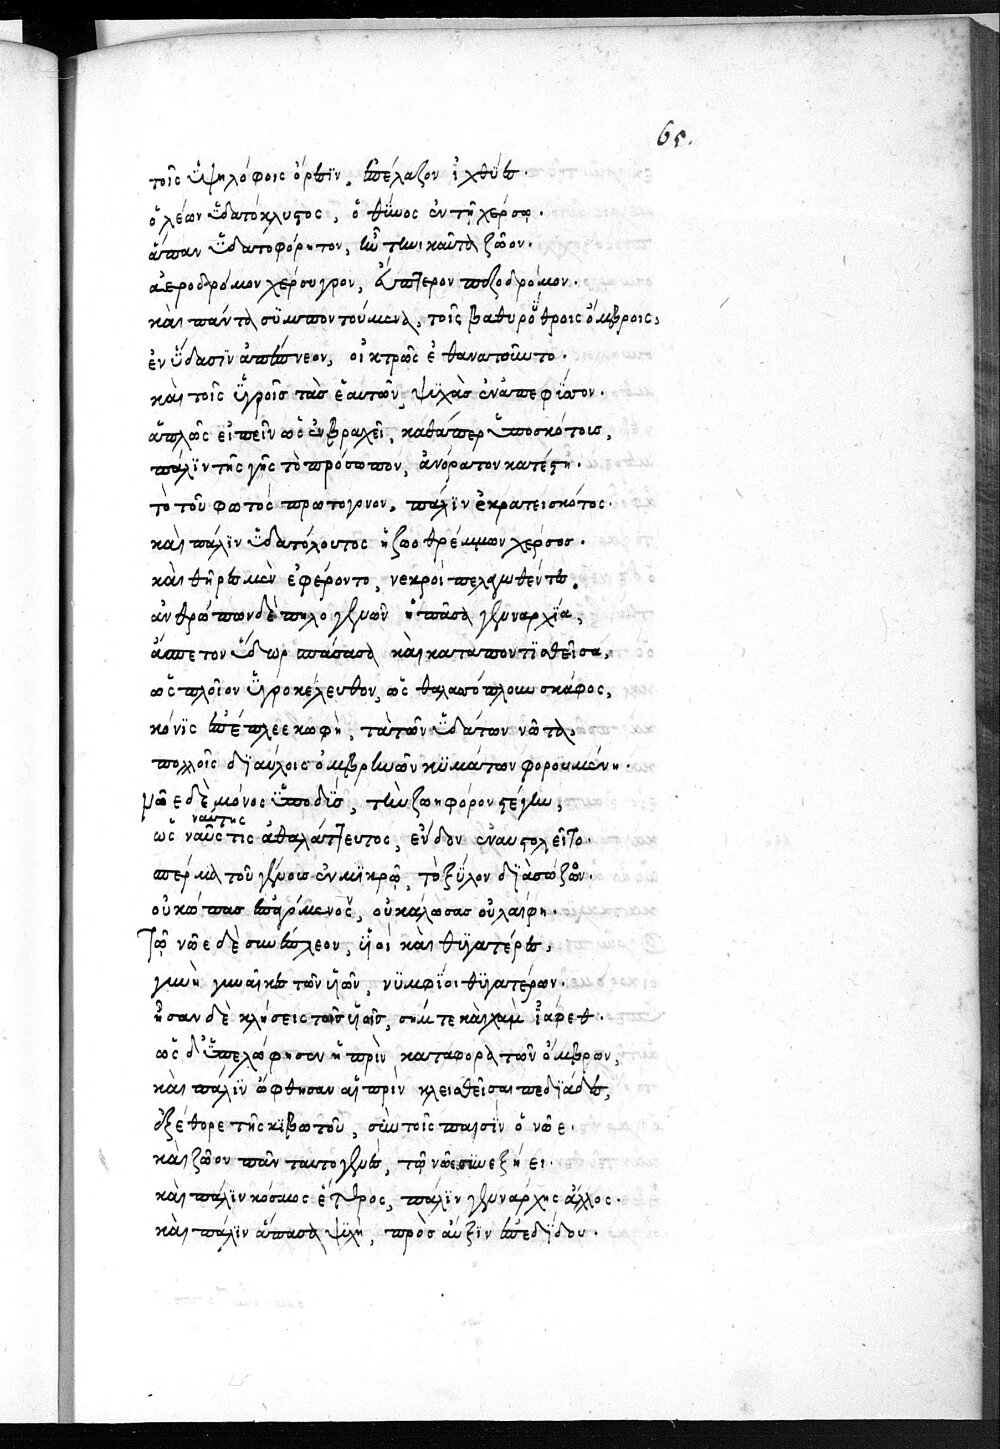 65.
τοῖς ὑψηλόφοις ὄρεσιν, ἐπέλαζον ἰχθύες.
ὁ λέων ὑδατόκλυστος, ὁ θύννος ἐν τῇ χέρσῳ.
ἅπαν ὑδατοφόρητον, ἦν τῶι καῦτα ζῶον.
ἀεροδρόμον χέρσυγρον, ἄπτερον πεζοδρόμον.
καὶ πάντα συμποντούμενα, τοῖς βαθυρρόθροις ὄμβροις,
ἐν ὕδασιν ἀπέπνεον, οἰκτρῶς ἐθανατοῦντο.
καὶ τοῖς ὑγροῖς τὰς ἑαυτῶν, ψυχὰς ἐναπεφύσων.
ἁπλῶς εἰπεῖν ὡς ἐν βραχεῖ, καθάπερ ὑπὸ σκότους,
πάλιν τῆς γῆς τὸ πρόσωπον, ἀνόρατον κατέστη.
τὸ τοῦ φωτὸς πρωτόγονον, πάλιν ἐκράτει σκότος.
καὶ πάλιν ὑδατόλουτος ἡ ζωοθρέμμων χέρσος.
καὶ θῆρες μὲν ἐφέροντο, νεκροὶ πελαγωθέντες.
ἀνθρώπων δὲ πηλογενῶν ἡ πᾶσα γεναρχία,
ἄπετον ὕδωρ σπάσασα καὶ καταποντισθεῖσα,
ὡς πλοῖον ὑγροκέλευθον, ὡς θαλασσόπλουν σκάφος,
κόνις ἐπέπλεε κωφὴ, τὰ τῶν ὑδάτων νῶτα,
πολλοῖς διαύλοις ὀμβρινῶν κυμάτων φορουμένη.
Νῶε δὲ μόνος ὑποδὺς, τὴν ζωηφόρον στέγην,
ναύτης
ὡς ναῦς τις ἀθαλάττευτος, ἔνδον ἐναυστολεῖτο.
σπέρμα τοῦ γένους ἐν μικρῷ, τὸ ξύλον διασώζων.
οὐ κώπας ἐπαγόμενος, οὐ κάλωσας οὐ λαίφη.
Τῷ νῶε δὲ συνέπλεον, υἱοὶ καὶ θυγατέρες,
γυνὴ γυναῖκες τῶν υἱῶν, νυμφίοι θυγατέρων.
ἦσαν δὲ κλήσεις τοῖς υἱοῖς, σήμ τε καὶ χὰμ ἰάφεθ.
ὡς δ' ὑπελώφησεν ἡ πρὶν καταφορὰ τῶν ὄμβρων,
καὶ πάλιν ὤφθησαν αἱ πρὶν κλεισθεῖσαι πεδιάδες,
ἐξέθορε τῆς κιβωτοῦ, σὺν τοῖς παισὶν ὁ νῶε.
καὶ ζῶον πᾶν ταυτογενὲς, τῷ νῶε συνεξήει.
καὶ πάλιν κόσμος ἕτερος, πάλιν γενάρχης ἄλλος.
καὶ πάλιν ἅπασα ψυχὴ, πρὸς αὔξιν ἐπεδίδου.